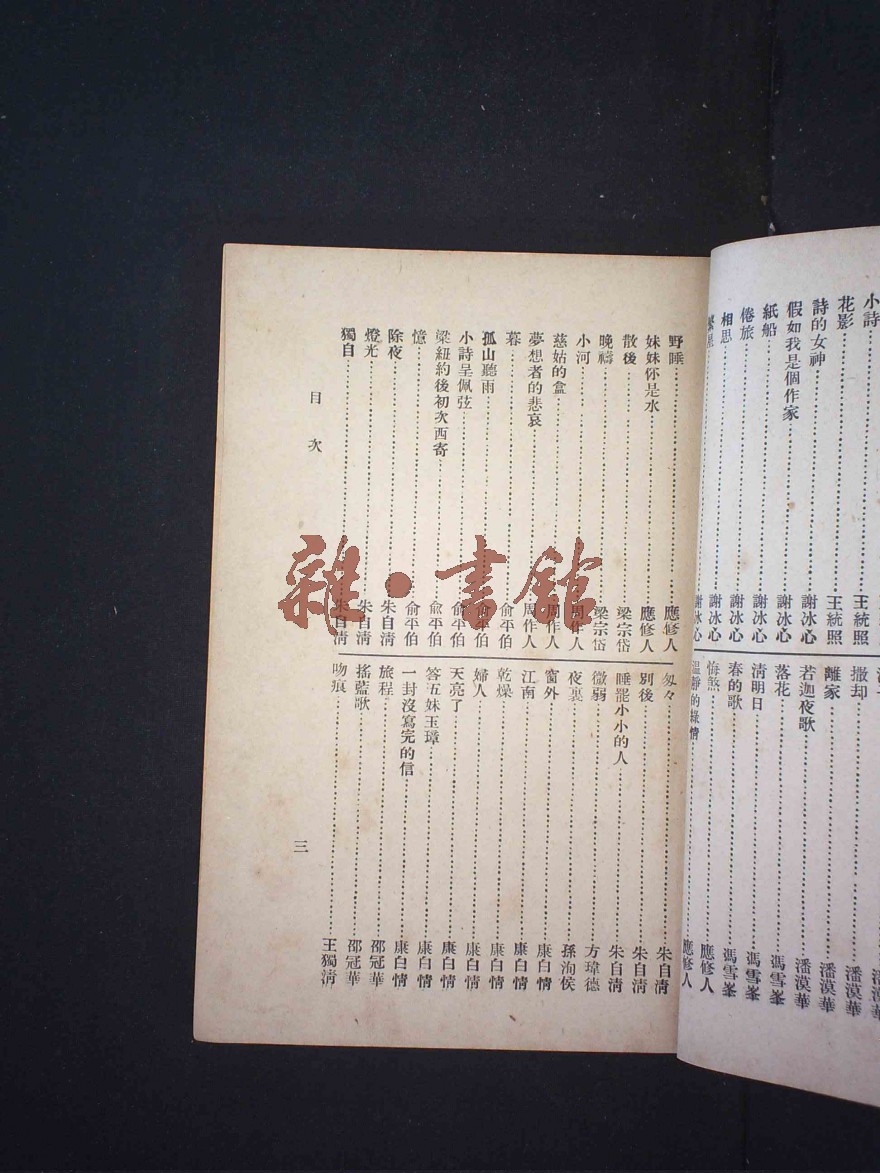 小詩……王統照
花影……王統照
詩的女神……謝冰心
假如我是個作家……謝冰心
紙船……謝冰心
倦旅……謝冰心
相思……謝冰心
繁星……謝冰心
潘漠華
撒却……潘漠華
離家……潘漠華
若迦夜歌……潘漠華
落花……馮雪峯
清明日……馮雪峯
春的歌……馮雪峯
悔煞……應修人
溫靜的綠情……應修人
野睡……應修人
妹妹你是水……應修人
散後……梁宗岱
晚禱……梁宗岱
小河……周作人
慈姑的盒……周作人
夢想者的悲哀……周作人
暮……俞平伯
孤山聽雨……俞平伯
小詩呈佩弦……俞平伯
梁紐約後初次西寄……俞平伯
憶……俞平伯
除夜……朱自清
燈光……朱自清
獨自……朱自清
匆々……朱自清
別後……朱自清
睡罷小小的人……朱自清
微弱……方瑋德
夜裏……孫洵侯
窗外……康白情
江南……康白情
乾燥……康白情
婦人……康白情
天亮了……康白情
答五妹玉璋……康白情
一封沒寫完的信……康白情
旅程……邵冠華
搖藍歌……邵冠華
吻痕……王獨清
目次
三
雜·書館